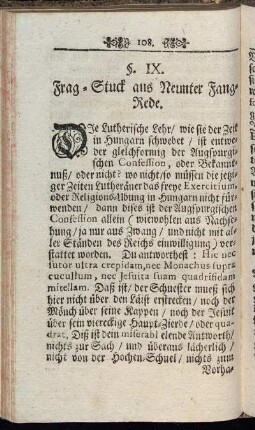 108.
§. IX.
Frag-Stuck aus Neunter Fang-
Rede.
DIe Lutherische Lehr / wie sie der Zeit
in Hungarn schwebet / ist entwe-
der gleichförmig der Augspurgi-
schen Confession, oder Bekannt-
nuß / oder nicht? wo nicht / so müssen die jetzi-
ger Zeiten Lutheraner das freye Exercitium,
oder Religions-Übung in Hungarn nicht für-
wenden / dann dises ist der Augspurgischen
Confession allein (worwohlen aus Nachse-
hung / ja nur aus Zwang / und nicht mit al-
ler Ständen des Reichs einwilligung) ver-
stattet worden. Du antworthest: Hic nec
sutor ultra crepidam, nec Monachus supra
cucullum, nec Jesuita suam quadrifidam
mitellam. Daß ist / der Schuester mueß sich
hier nicht über den Laist erstrecken / noch der
Mönch über seine Kappen / noch der Jesuit
über sein viereckige Haupt-Zierde / oder qua-
drat. Diß ist dein miserabl elende Antworth /
nichts zur Sach / und überaus lächerlich /
nicht von der Hochen-Schuel / nichts zum
Vorha-